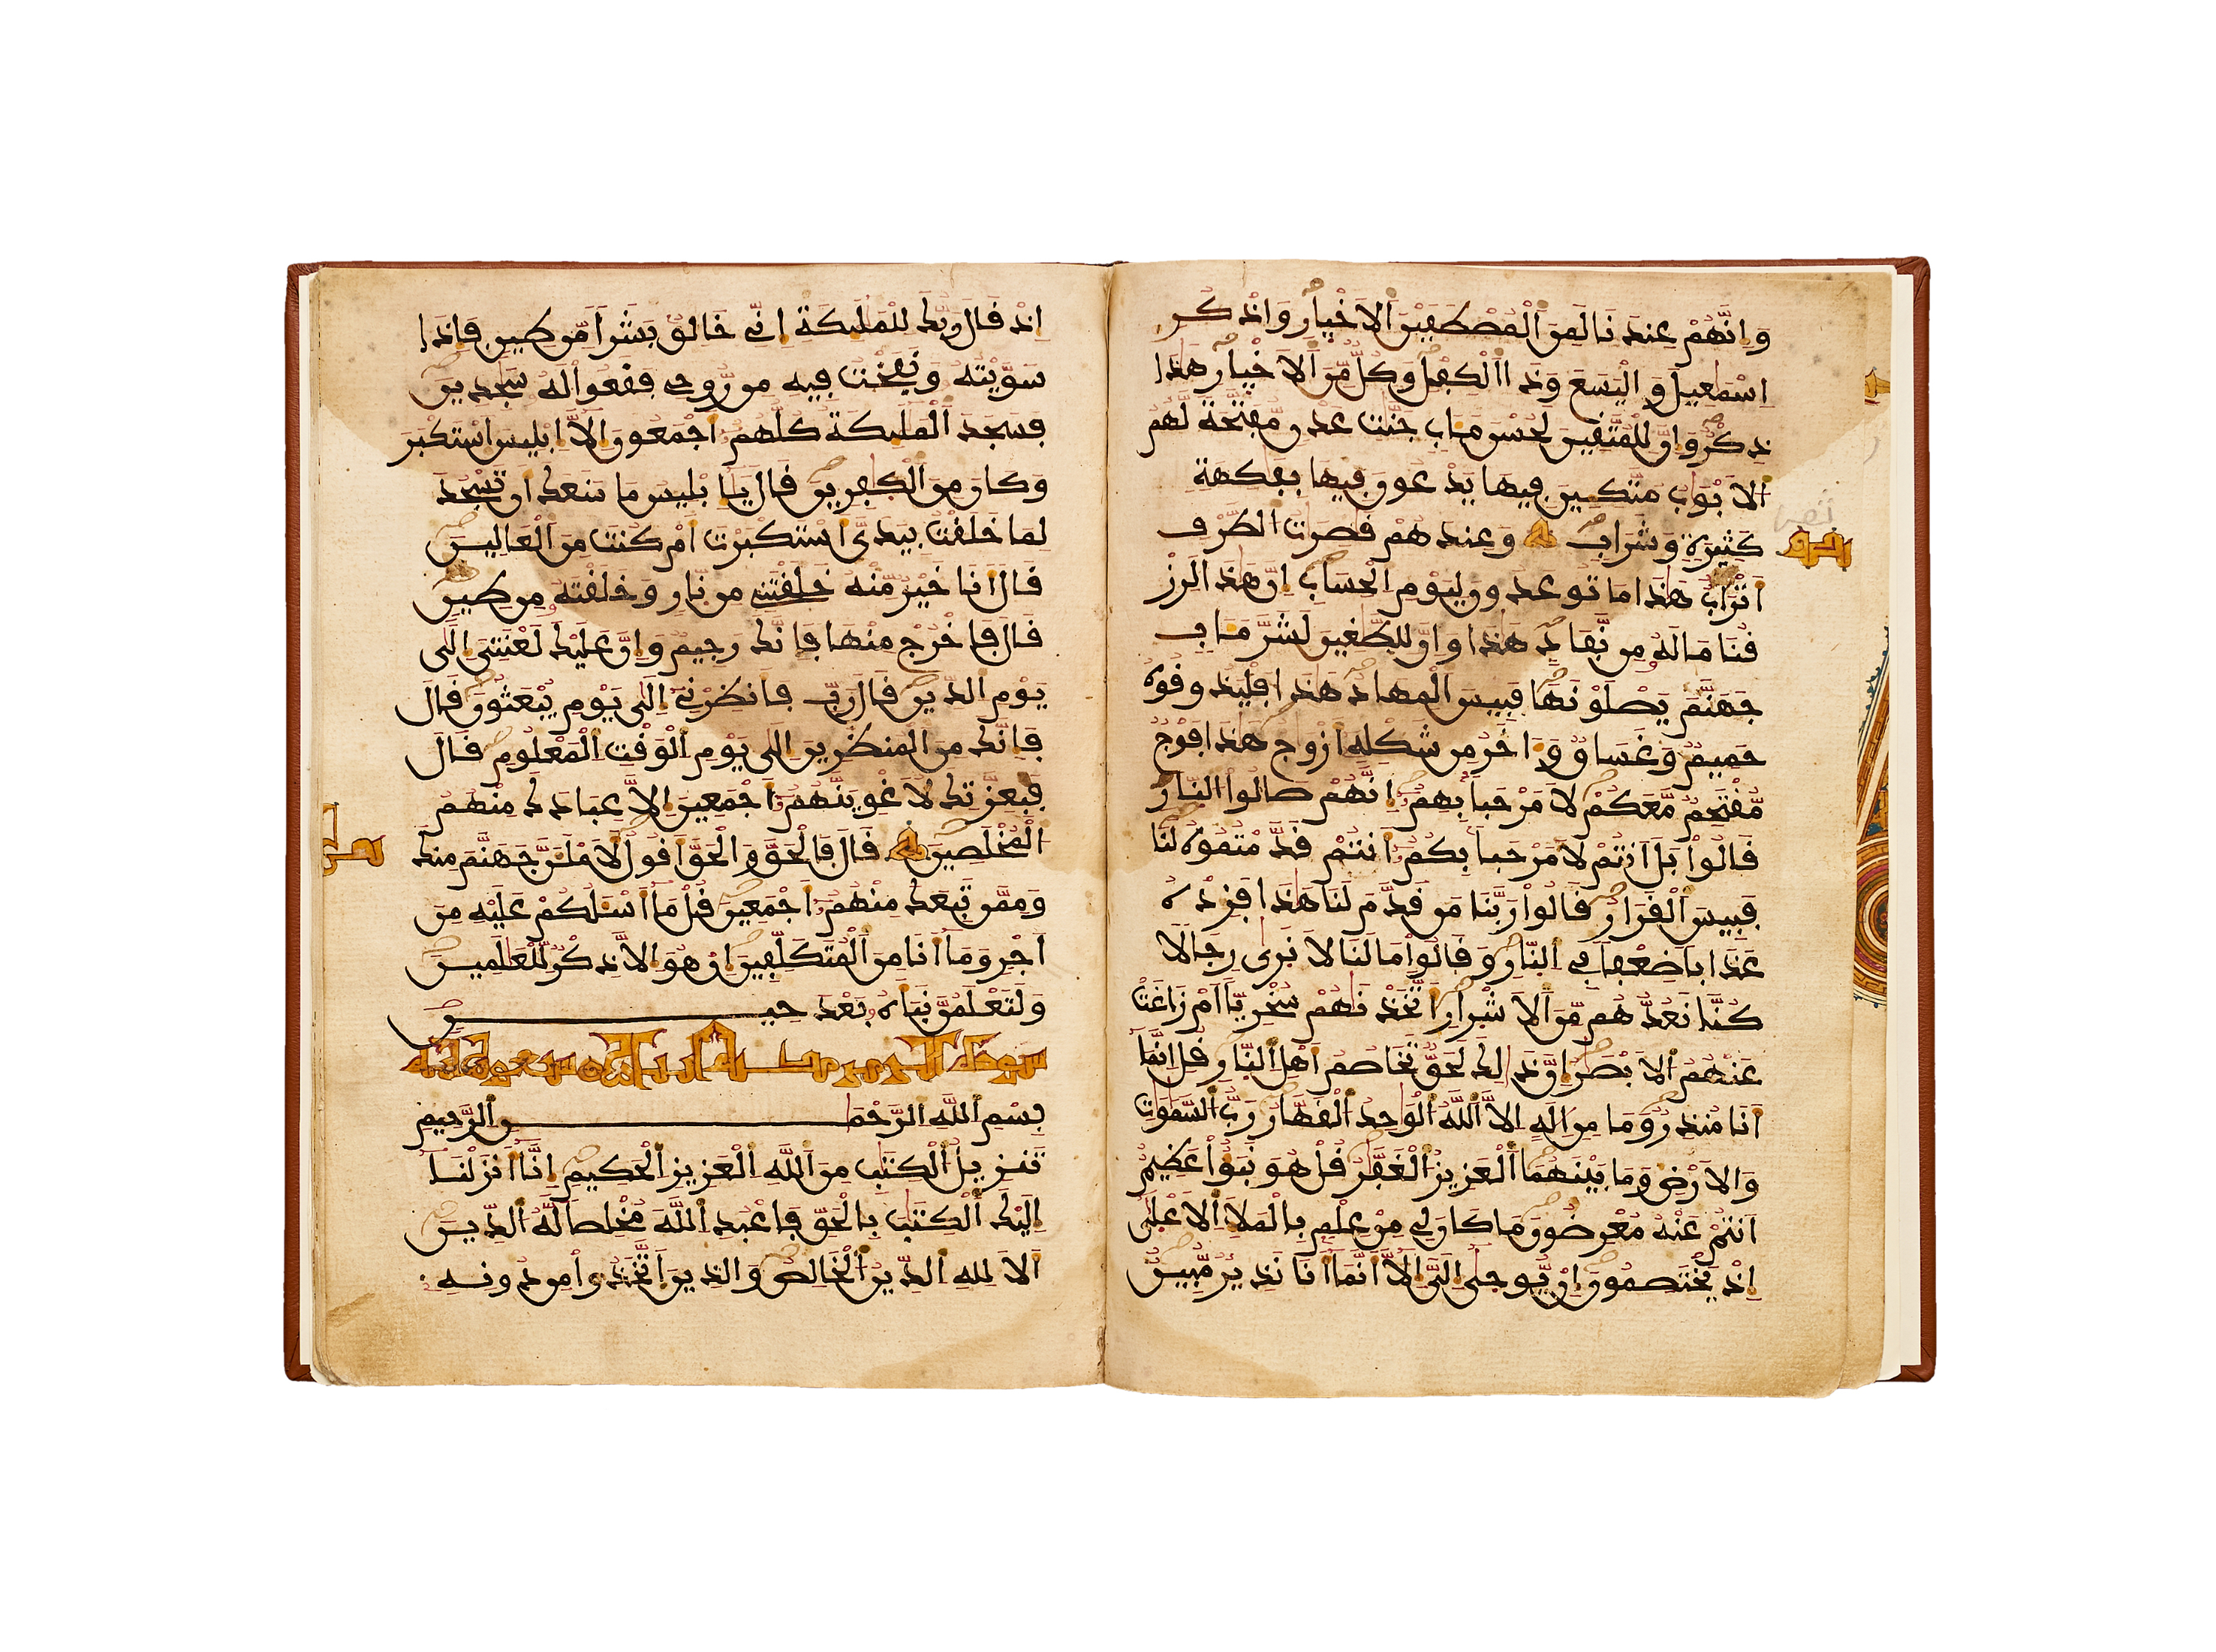 وانهم عندنا لمن المصطفين الاخيار واذكر
اسمعيل واليسع وذا الكفل وكل من الاخيار هذا
ذكر وان للمتقين لحسن مـاب جنت عدن مفتحة لهم
الابوب متكين فيها يدعون فيها بفكهة
كثيرة وشراب وعندهم قصرت الطرف
اتراب هذا ما توعدون ليوم الحساب ان هذا لرز
قنا ما له من نفاد هذا وان للطغين لشر مـاب
جهنم يصلونها فبيس المهاد هذا فليذوقوه
حميم وغساق واخر من شكله ازوج هذا فوج
مقتحم معكم لا مرحبا بهم انهم صالوا النار
قالوا بل انتم لا مرحبا بكم انتم قدمتموه لنا
فبيس القرار قالوا ربنا من قدم لنا هذا فزده
عذابا ضعفا في النار وقالوا ما لنا لا نرى رجالا
كنا نعدهم من الاشرار اتخذنهم سخريا ام زاغت
عنهم الابصر ان ذلك لحق تخاصم اهل النار قل انما
انا منذر وما من اله الا الله الوحد القهار رب السموت
والارض وما بينهما العزيز الغفر قل هو نبؤا عظيم
انتم عنه معرضون ما كان لي من علم بالملا الاعلى
اذ يختصمون ان يوحى الي الا انما انا نذير مبين
اذ قال ربك للمليكة اني خالق بشرا من طين فاذا
سويته ونفخت فيه من روحي فقعوا له سجدين
فسجد المليكة كلهم اجمعون الا ابليس استكبر
وكان من الكفرين قال يابليس ما منعك ان تسجد
لما خلقت بيدي استكبرت ام كنت من العالين
قال انا خير منه خلقتني من نار وخلقته من طين
قال فاخرج منها فانك رجيم وان عليك لعنتي الى
يوم الدين قال رب فانظرني الى يوم يبعثون قال
فانك من المنظرين الى يوم الوقت المعلوم قال
فبعزتك لاغوينهم اجمعين الا عبادك منهم
المخلصين قال فالحق والحق اقول لاملن جهنم منك
وممن تبعك منهم اجمعين قل ما اسلكم عليه من
اجر وما انا من المتكلفين ان هو الا ذكر للعلمين
ولتعلمن نباه بعد حين
بسم الله الرحمن الرحيم
تنزيل الكتب من الله العزيز الحكيم انا انزلنا
اليك الكتب بالحق فاعبد الله مخلصا له الدين
الا لله الدين الخالص والذين اتخذوا من دونه